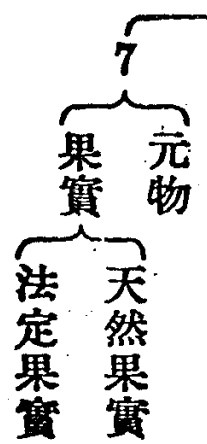 7
元物
果實
天然果實
法定果實